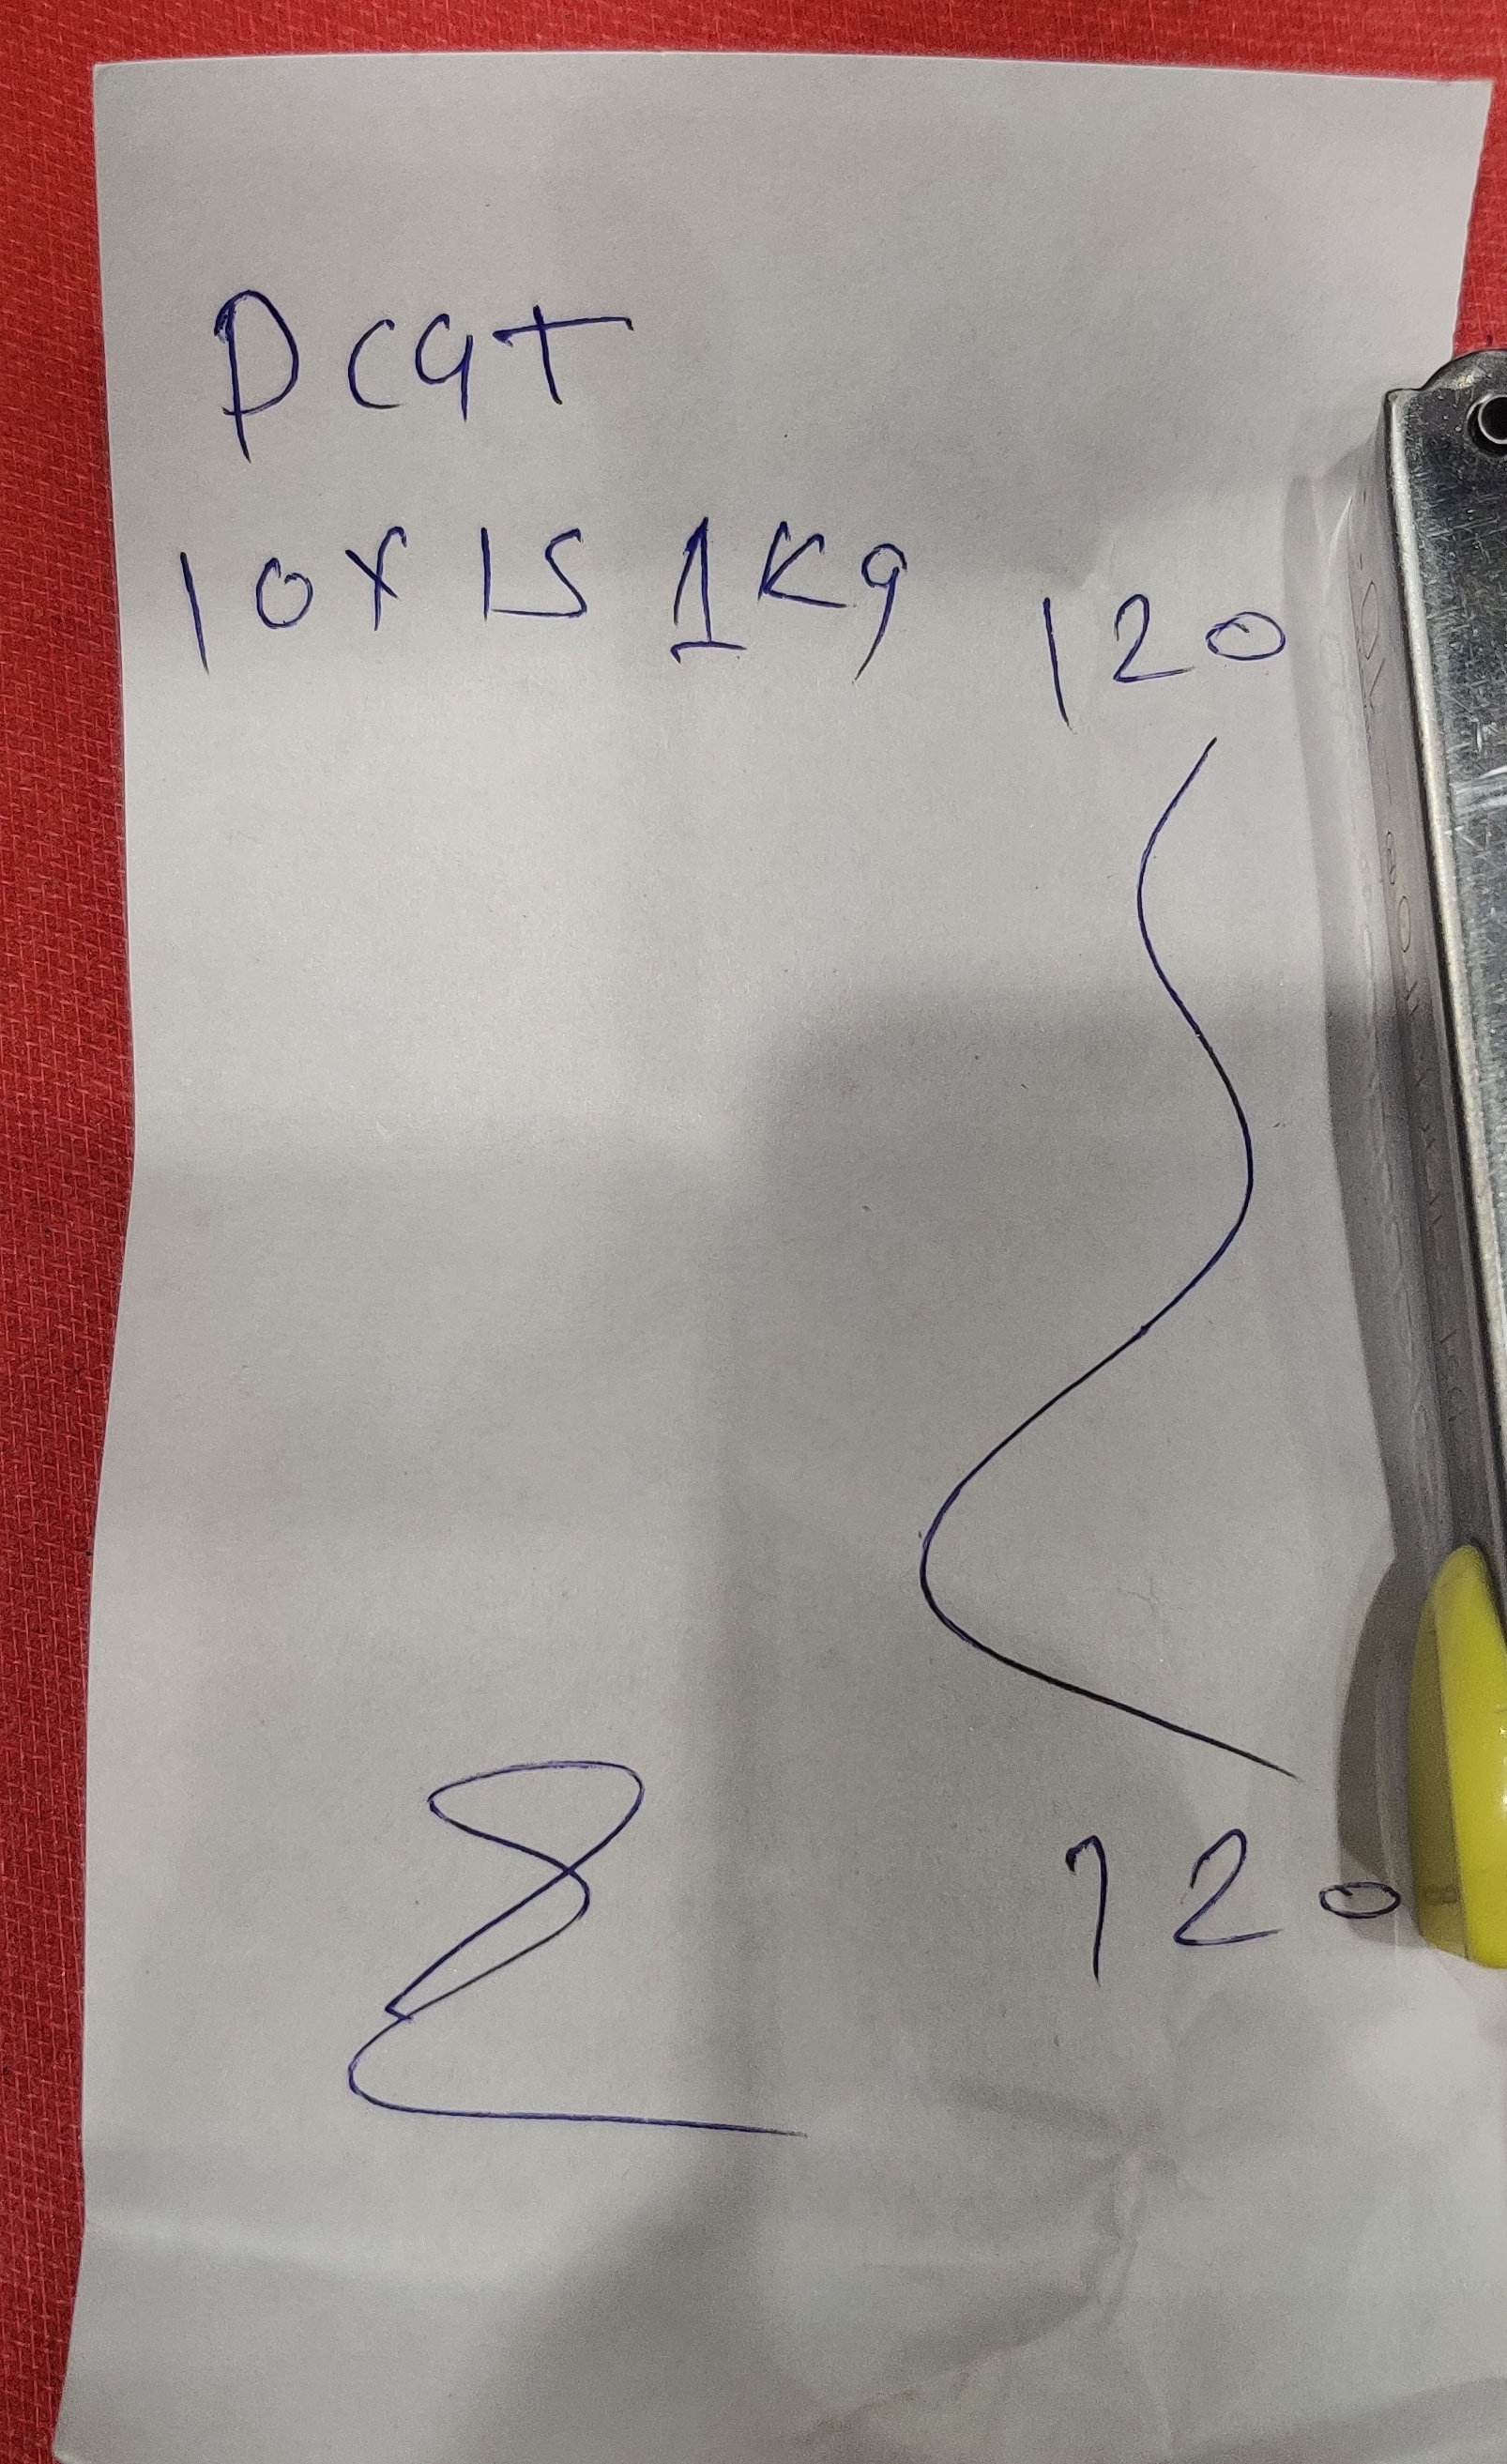 PCGT
10X15 1Kg 120
120